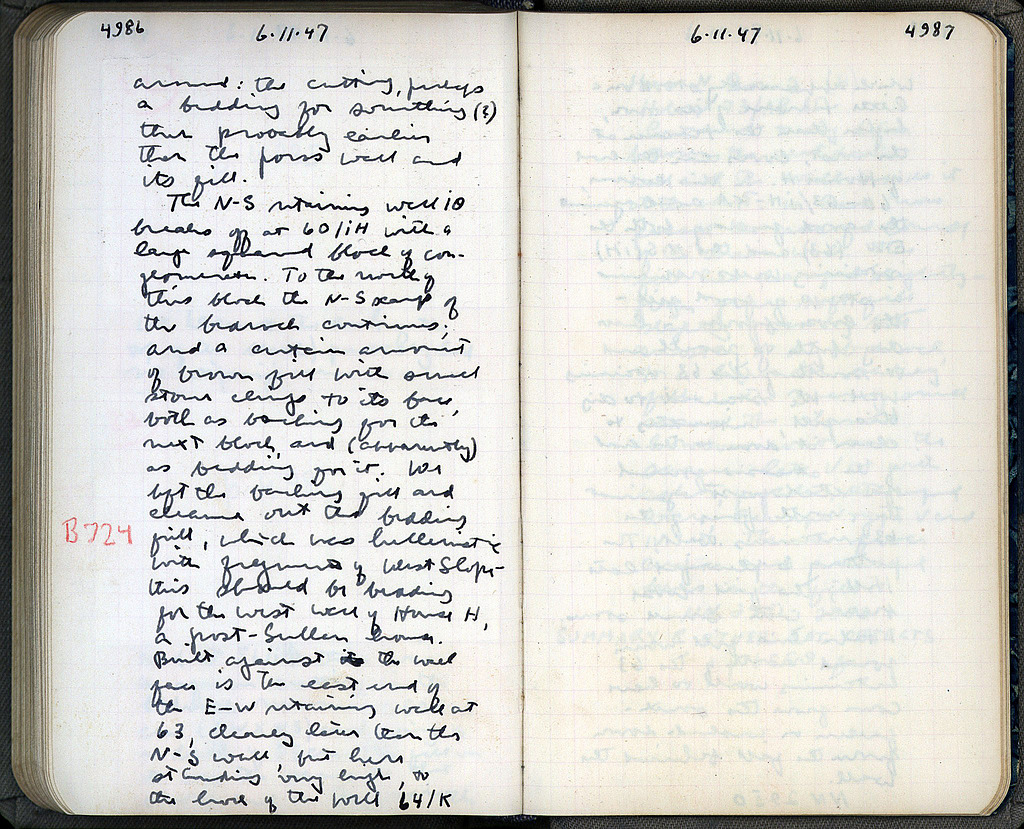 4986
6·11·47
around: the cutting, perhaps
a bedding for something (?)
thus probably earlier
than the poros wall and
its fill.
The N-S retaining wall 18
breaks off at 60/ΙΗ with a
large squared block of con-
glomerate. To the north of
this block the N-S scarp of
the bedrock continues,
and a certain amount
of brown fill with small
stones clings to its face,
both as backing for the
next block, and (apparently)
as bedding for it. We
left the backing fill and
cleaned out the bedding
B724
fill, which was hellenistic
with fragments of West Slope-
this should be bedding
for the west wall of House H,
a post-Sullan house.
Built against the wall
face is the east end of
the E-W retaining wall at
63, clearly later than the
N-S wall, but here
standing very high, to
the level of the 64/Κ
6·11·47
4987